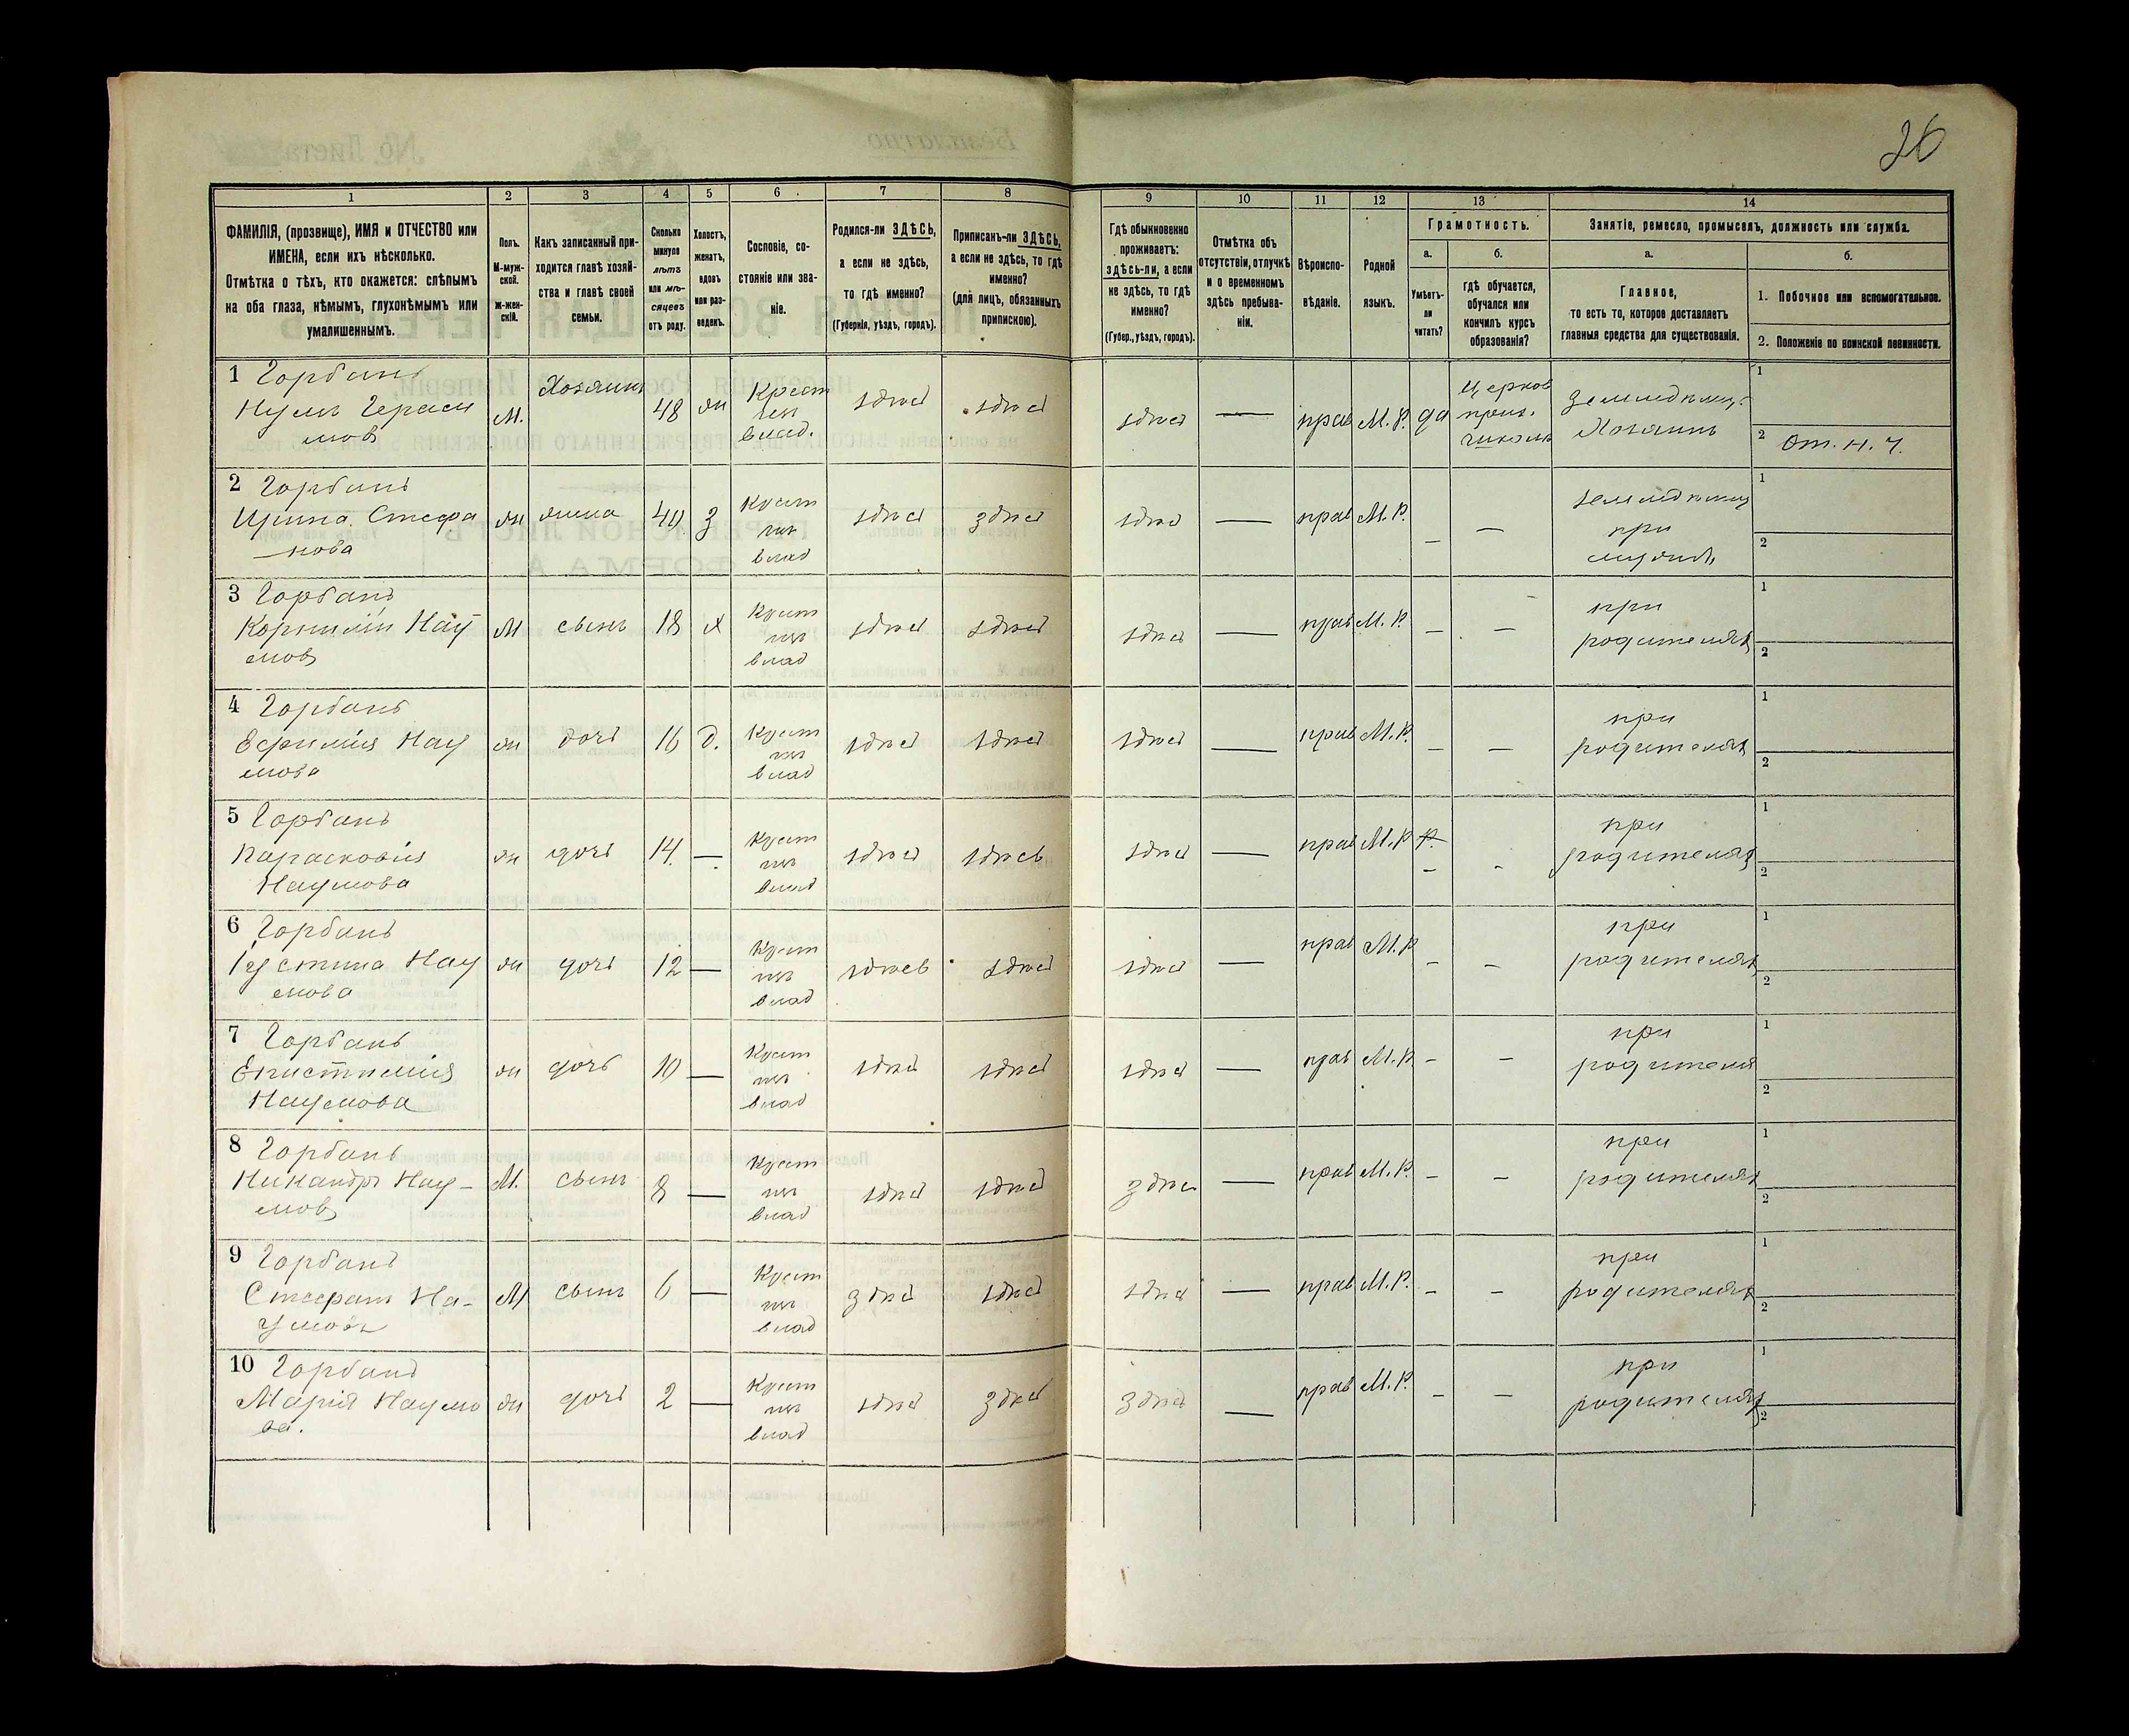 26
1 2 3 4 5 6 7 8 9 10 11 12 13 14
ФАМИЛІЯ, (прозвище), ИМЯ и ОТЧЕСТВО или
ИМЕНА, если ихъ нѣсколько.
Отмѣтка о тѣхъ, кто окажется: слѣпымъ
на оба глаза, нѣмымъ, глухонѣмымъ или
умалишеннымъ.
Полъ.
М-муж-
ской.
Ж-жен-
скій.
Какъ записанный при-
ходится главѣ хозяй-
ства и главѣ своей
семьи.
Сколько
минуло
лѣтъ
или мѣ-
сяцевъ
отъ роду.
Холостъ,
женатъ,
вдовъ
или раз-
веденъ.
Сословіе, со-
стояніе или зва-
ніе.
Родился-ли ЗДѢСЬ,
а если не здѣсь,
то гдѣ именно?
(Губернія, уѣздъ, городъ).
Приписанъ-ли ЗДѢСЬ,
а если не здѣсь, то гдѣ
именно?
(для лицъ, обязанныхъ
припискою).
Гдѣ обыкновенно
проживаетъ:
здѣсь-ли, а если
не здѣсь, то гдѣ
именно?
(Губер., уѣздъ, городъ).
Отмѣтка объ
отсутствіи, отлучкѣ
и о временномъ
здѣсь пребыва-
ніи.
Вѣроиспо-
вѣданіе.
Родной
языкъ.
Грамотность.
а.
Умѣетъ-
ли
читать?
б.
гдѣ обучается,
обучался или
кончилъ курсъ
образованія?
Занятіе, ремесло, промыселъ, должность или служба.
а.
Главное,
то есть то, которое доставляетъ
главныя средства для существованія.
б.
1. Побочное или вспомогательное.
2. Положеніе по воинской повинности.
1 Горбань
Наумъ Гераси
мовъ
М. Хозяинъ 48 ж
Крест
влад.
здѣсь здѣсь здѣсь — прав М.Р. да
Церков
прих.
школѣ
Земледѣлец:
Хозяинъ
1
2 От. н. ч.
2 Горбань
Ирина Стефа
нова
ж жена 40 З
Крест
влад
здѣсь здѣсь здѣсь — прав М.Р. — —
земледѣлец
при
мужѣ
1
2
3 Горбань
Корнилій Нау
мовъ
М сынъ 18 х
Крест
влад
здѣсь здѣсь здѣсь — прав М.Р. — —
при
родителяхъ
1
2
4 Горбань
Ефимія Нау
мова
ж дочь 16 д.
Крест
влад
здѣсь здѣсь здѣсь — прав М.Р. — —
при
родителяхъ
1
2
5 Горбань
Парасковія
Наумова
ж дочь 14 —
Крест
влад
здѣсь здѣсь здѣсь — прав М.Р. — —
при
родителяхъ
1
2
6 Горбань
Іустина Нау
мова
ж дочь 12 —
Крест
влад
здѣсь здѣсь здѣсь — прав М.Р. — —
при
родителяхъ
1
2
7 Горбань
Епистимія
Наумова
ж дочь 10 —
Крест
влад
здѣсь здѣсь здѣсь — прав М.Р. — —
при
родителя
1
2
8 Горбань
Никандръ Нау-
мовъ
М. сынъ 8 —
Крест
влад
здѣсь здѣсь здѣсь — прав М.Р. — —
при
родителях
1
2
9 Горбань
Стефанъ На-
умовъ
М сынъ 6 —
Крест
влад
здѣсь здѣсь здѣсь — прав М.Р. — —
при
родителях
1
2
10 Горбань
Марія Наумо
ва.
ж дочь 2 —
Крест
влад
здѣсь здѣсь здѣсь — прав М.Р. — —
при
родителяхъ
1
2